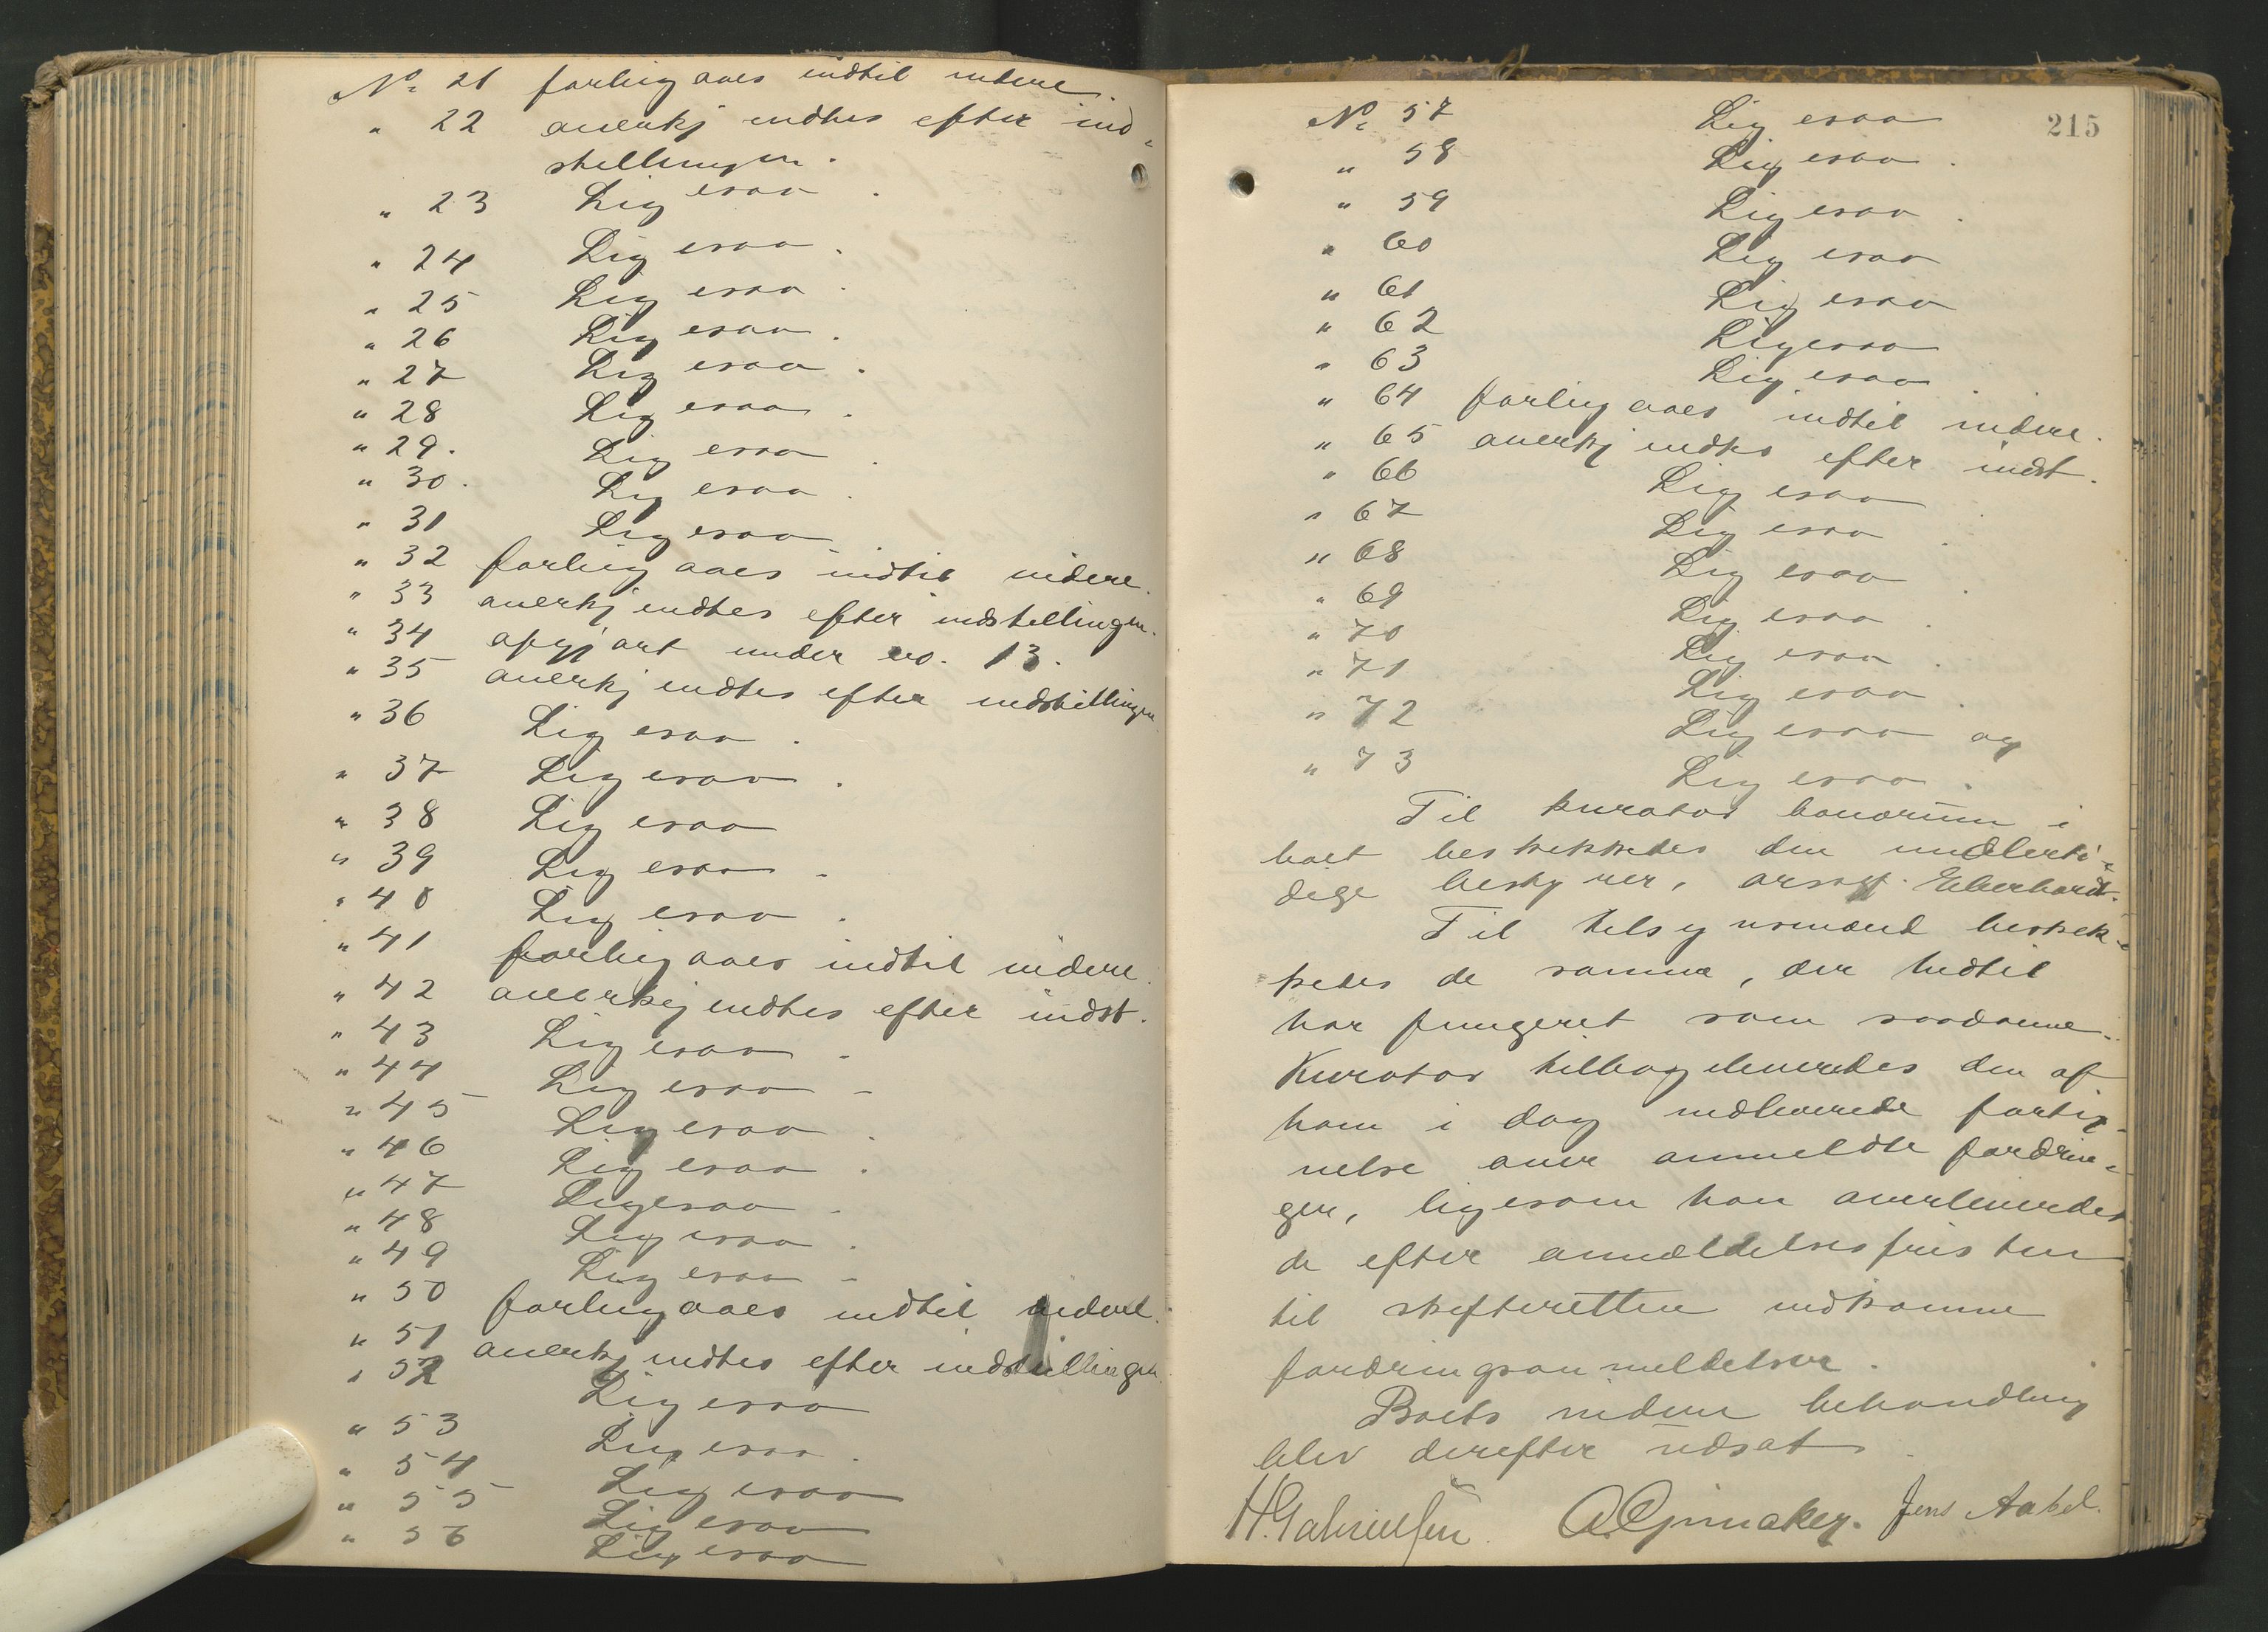 No 21 forbigaaes indtil videre.
" 22 anerkjendtes efter ind-
stillingen.
" 23 Ligesaa.
" 24 Ligesaa.
" 25 Ligesaa.
" 26 Ligesaa.
" 27 Ligesaa.
" 28 Ligesaa.
" 29. Ligesaa.
" 30. Ligesaa.
" 31 Ligesaa
" 32 forbigaaes indtil videre.
" 33 anerkjendtes efter indstillingen.
" 34 afgjort under no. 13.
" 35 anerkjendtes efter indstillingen
" 36 Ligesaa.
" 37 Ligesaa.
" 38 Ligesaa
" 39 Ligesaa.
" 40 Ligesaa.
" 41 forbigaaes indtil videre.
" 42 anerkjendtes efter indst.
" 43 Ligesaa.
" 44 Ligesaa.
" 45 Ligesaa.
" 46 Ligesaa.
" 47 Ligesaa.
" 48 Ligesaa.
" 49 Ligesaa.
" 50 forbigaaes indtil videre.
" 51 anerkjendtes efter indstillingen.
" 52 Ligesaa
" 53 Ligesaa.
" 54 Ligesaa
" 55 Ligesaa
" 56 Ligesaa
215
No 57 Ligesaa
" 58 Ligesaa.
" 59 Ligesaa.
" 60 Ligesaa
" 61 Ligesaa
" 62 Ligesaa
" 63 Ligesaa.
" 64 forbigaaes indtil videre.
" 65 anerkjendtes efter indst.
" 66 Ligesaa
" 67 Ligesaa.
" 68 Ligesaa.
" 69 Ligesaa.
" 70 Ligesaa.
" 71 Ligesaa.
" 72 Ligesaa og
" 73 Ligesaa.
Til kurator bonorum i
boet beskikkedes den midlerti-
dige bestyrer, orsagf. Eberhardt.
Til tilsynsmænd beskik-
kedes de samme, der hidtil
har fungeret som saadanne.
Kurator tilbageleveredes den af
ham i dag indleverede forteg-
nelse over anmeldte fordrin-
ger, ligesom han overleveredes
de efter anmeldelsesfristen
til skifteretten indkomne
fordringsanmeldelser.
Boets videre behandling
blev derefter udsat.
H. Gabrielsen. Jens Aabel.